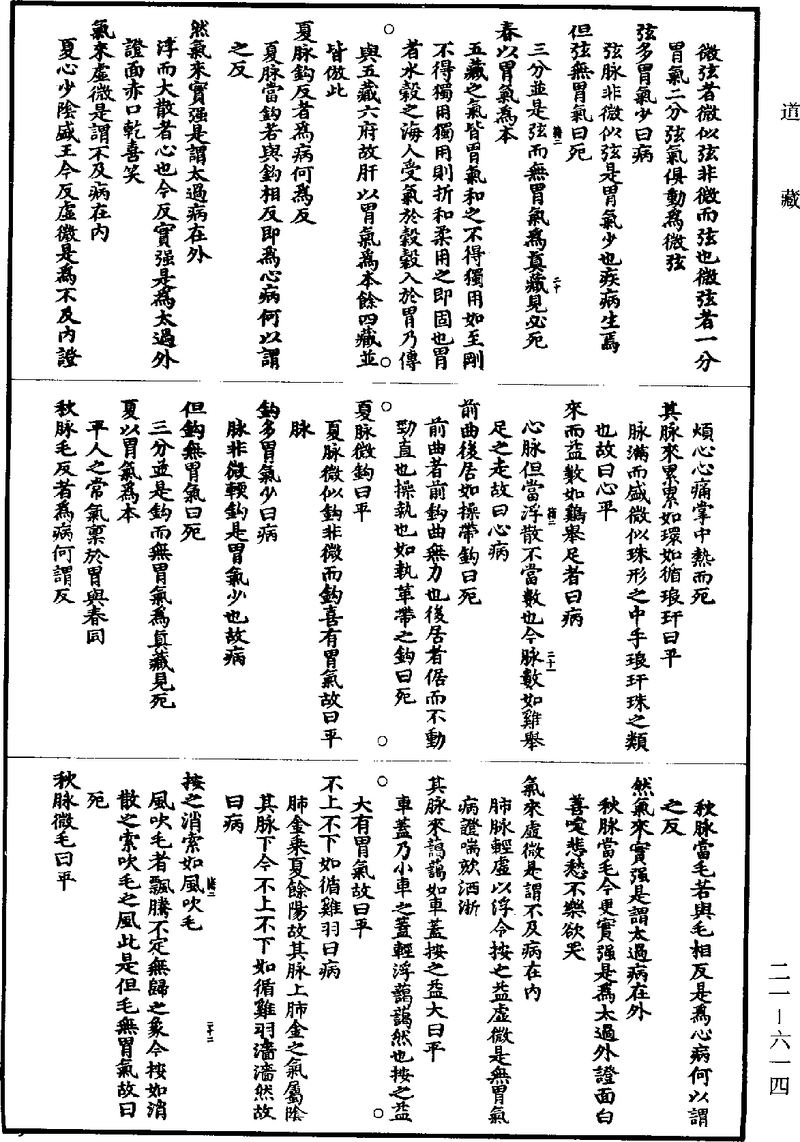 道藏
微弦者微似弦非微而弦也微弦者一分
胃氣二分弦氣俱動為微弦
弦多胃氣少曰病
弦脉非微似弦是胃氣少也疾病生焉
但弦無胃氣曰死
三分並是弦而無胃氣為真藏見必死
春以胃氣為本
五藏之氣皆胃氣和之不得獨用如至剛
不得獨用獨用則折和柔用之即固也胃
者水穀之海人受氣於穀穀入於胃乃傳
與五藏六府故肝以胃氣為本餘四藏並
皆倣此
夏脉鈎反者為病何為反
夏脉當鈎若與鈎相反即為心病何以謂
之反
然氣來實强是謂太過病在外
浮而大散者心也今反實强是為太過外
證面赤口乾喜笑
氣來虛微是謂不及病在內
夏心少陰盛王今反虛微是為不及內證
煩心心痛掌中熱而死
其脉來累累如環如循琅玕曰平
脉滿而盛微似珠形之中手琅玕珠之類
也故曰心平
來而益數如鷄舉足者曰病
心脉但當浮散不當數也今脉數如雞舉
足之走故曰心病
前曲後居如操帶鈎曰死
前曲者前鈎曲無力也後居者倨而不動
勁直也操執也如執革帶之鈎曰死
夏脉微鈎曰平
夏脉微似鈎非微而鈎喜有胃氣故曰平
脉
鈎多胃氣少曰病
脉非微輭鈎是胃氣少也故病
但鈎無胃氣曰死
三分並是鈎而無胃氣為真藏見死
夏以胃氣為本
平人之常氣禀於胃與春同
秋脉毛反者為病何謂反
秋脉當毛若與毛相反是為心病何以謂
之反
然氣來實强是謂太過病在外
秋脉當毛今更實强是為太過外證面白
善嚏悲愁不樂欲哭
氣來虛微是謂不及病在內
肺脉輕虛以浮今按之益虛微是無胃氣
病證喘欬洒淅
其脉來藹藹如車蓋按之益大曰平
車蓋乃小車之蓋輕浮藹藹然也按之益
大有胃氣故曰平
不上不下如循雞羽曰病
肺金乘夏餘陽故其脉上肺金之氣屬陰
其脉下今不上不下如循雞羽濇濇然故
曰病
按之消索如風吹毛
風吹毛者飄騰不定無歸之象今按如消
散之索吹毛之風此是但毛無胃氣故曰
死
秋脉微毛曰平
二一—六一四